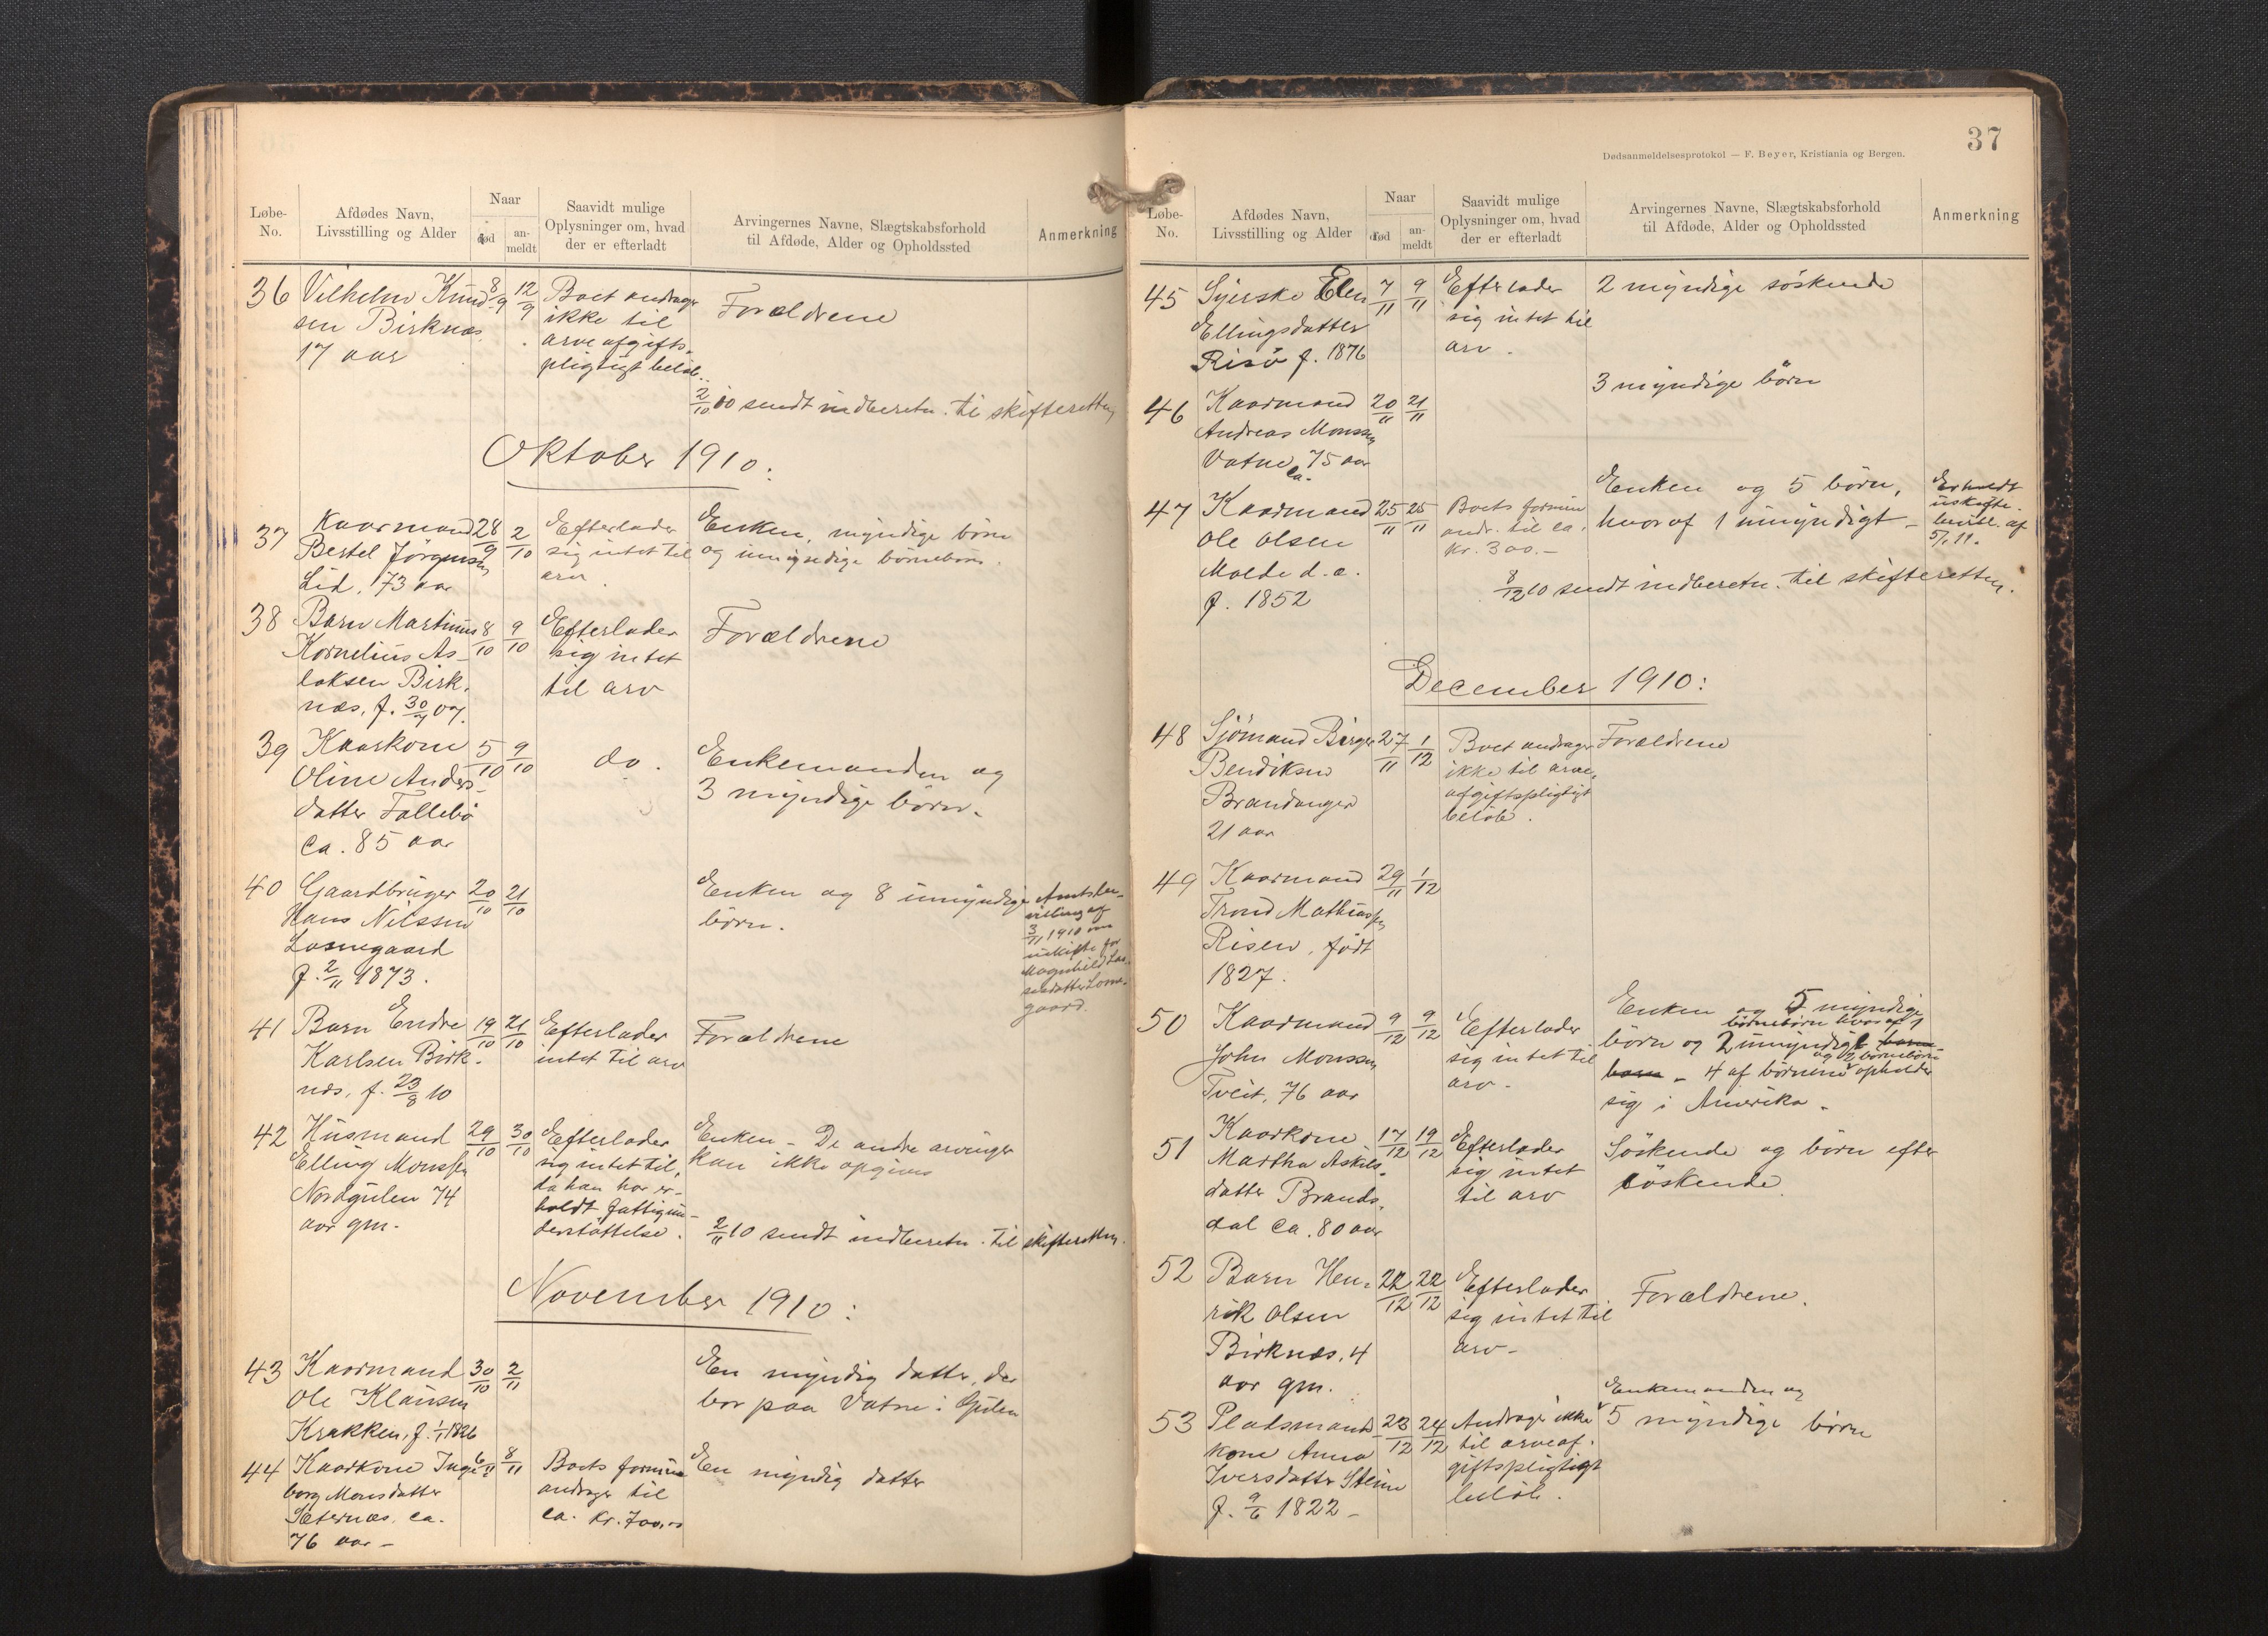 Løbe-
No.
Afdødes Navn,
Livsstilling og Alder
Naar
død
an-
meldt
Saavidt mulige
Oplysninger om, hvad
der er efterladt
Arvingernes Navne, Slægtskabsforhold
til Afdøde, Alder og Opholdssted
Anmerkning
36 Vilhelm Knud- 8/9 12/9 Boet andrager Forældrene
sen Birknæs ikke til
17 aar arveafgifts-
pligtigt beløb.
2/10 10 sendt indberetn. til skifteretten
Oktober 1910:
37 Kaarmand 28/9 2/10 Efterlader Enken, myndige børn
Bertel Jørgensen sig intet til og umyndige børnebørn.
Lid, 73 aar arv.
38 Barn Martinus 8/10 9/10 Efterlader Forældrene
Kornelius As- sig intet
laksen Birk- til arv
næs, f. 30/7 07.
39 Kaarkone 5/10 9/10 do. Enkemanden og
Oline Anders- 3 myndige børn.
datter Follebø
ca. 85 aar
40 Gaardbruger 20/10 21/10 Enken og 8 umyndige Amtsbe-
Hans Nilssen børn. villing af
Losnegaard 3/11 1910 om
f. 2/11 1873. uskifte for
Magnhild Las-
sesdatter Losne-
gaard.
41 Barn Endre 19/10 21/10 Efterlader Forældrene
Karlsen Birk- intet til arv
næs, f. 23/8 10
42 Husmand 29/10 30/10 Efterlader Enken - De andre arvinger
Elling Monssen sig intet til, kan ikke opgives
Nordgulen 74 da han har er-
aar gm. holdt fattigun-
derstøttelse. 2/11 10 sendt indberetn. til skifteretten.
November 1910:
43 Kaarmand 30/10 2/11 En myndig datter, der
Ole Klausen bor paa Vatne i Gulen
Krakken, f. 1/1 1826
44 Kaarkone Inge- 6/11 8/11 Boets formue En myndig datter
borg Monsdatter andrager til
Sæternæs. ca. ca. kr. 700,-
76 aar -
37
Dødsanmeldelsesprotokol — F. Beyer, Kristiania og Bergen.
Løbe-
No.
Afdødes Navn,
Livsstilling og Alder
Naar
død
an-
meldt
Saavidt mulige
Oplysninger om, hvad
der er efterladt
Arvingernes Navne, Slægtskabsforhold
til Afdøde, Alder og Opholdssted
Anmerkning
45 Syerske Elen 7/11 9/11 Efterlader 2 myndige søskende
Ellingsdatter sig intet til
Risö f. 1876 arv.
46 Kaarmand 20/11 21/11 3 myndige børn
Andreas Monssen
Vatne, 75 aar
ca.
47 Kaarmand 25/11 25/11 Boets formue Enken og 5 børn, Erholdt
Ole Olsen andr. til ca. hvoraf 1 umyndigt - uskifte-
Molde d.e. kr. 300.- bevill. af
f. 1852 5/1 11.
8/12 10 sendt indberetn. til skifteretten.
December 1910:
48 Sjømand Birger 27/11 1/12 Boet andrager Forældrene
Bendiksen ikke til arve-
Brandanger afgiftspligtigt
21 aar beløb.
49 Kaarmand 29/11 1/12
Trond Mathiassen
Risen, født
1827.
50 Kaarmand 9/12 9/12 Efterlader Enken og 5 myndige
John Monssen sig intet til børn og 2 børnebørn hvoraf 1 umyndigt barn
Tveit, 76 aar arv. barn - 4 af børnene og 2 børnebørn opholder
sig i Amerika.
51 Kaarkone 17/12 19/12 Efterlader Søskende og børn efter
Martha Askils- sig intet søskende.
datter Brands- til arv
dal ca. 80 aar
52 Barn Hen- 22/12 22/12 Efterlader Forældrene.
rik Olsen sig intet til
Birknæs, 4 arv -
aar gm.
53 Pladsmands- 23/12 24/12 Andrager ikke Enkemanden og
kone Anna til arveaf- 5 myndige børn
Iversdatter Steine giftspligtigt
f. 9/6 1822 - beløb.